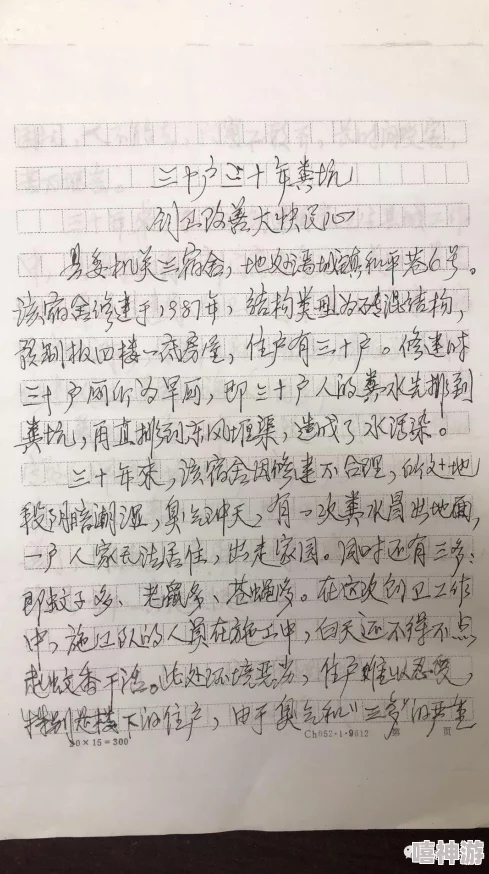 三十户三十年粪坑
创卫改善大快民心
县委机关三宿舍，地处城镇和平巷6号。
该宿舍修建于1987年，结构类型为砖混结构，
预制板四楼一底房屋，住户有三十户。修建时
三十户厕所为旱厕，即三十户人的粪水先排到
粪坑，再直排到东风堰渠，造成了水污染。
三十年来，该宿舍因修建不合理，所处地
段阴暗潮湿，臭气冲天，有一次粪水冒出地面，
一户人家无法居住，出走家园。同时还有三多：
即蚊子多、老鼠多、苍蝇多。在这次创卫工作
中，施工队的人员在施工中，白天还不得不点
起蚊香干活。此处环境恶劣，住户难以忍受，
特别是楼下的住户，由于臭气和"三多"的严重
20×15=300
Ch052·1·9812 第 页
嘻神游